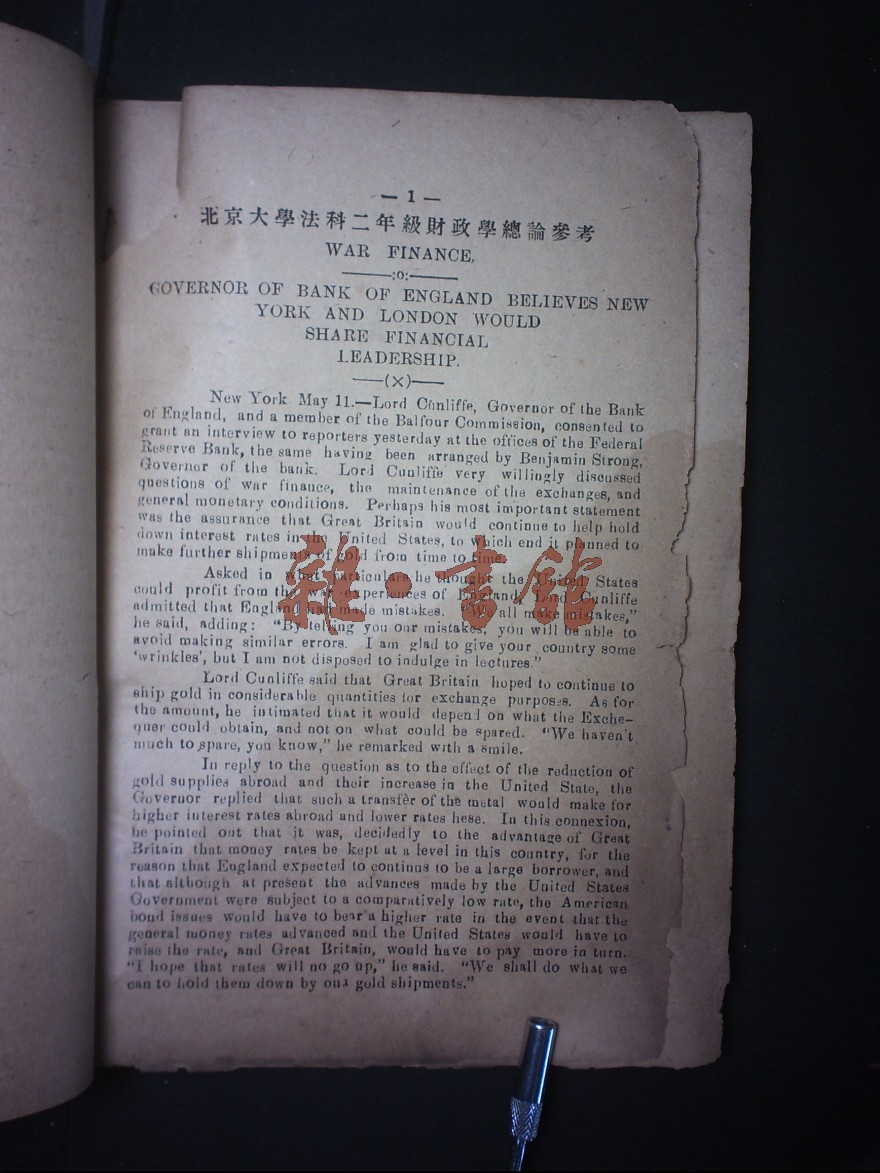 — 1 —
北京大學法科二年級財政學總論參考
WAR FINANCE.
:o:
GOVERNOR OF BANK OF ENGLAND BELIEVES NEW
YORK AND LONDON WOULD
SHARE FINANCIAL
LEADERSHIP.
(X)
New York May 11.—Lord Cunliffe, Governor of the Bank
of England, and a member of the Balfour Commission, consented to
grant an interview to reporters yesterday at the offices of the Federal
Reserve Bank, the same having been arranged by Benjamin Strong,
Governor of the bank. Lord Cunliffe very willingly discussed
questions of war finance, the maintenance of the exchanges, and
general monetary conditions. Perhaps his most important statement
was the assurance that Great Britain would continue to help hold
down interest rates in the United States, to which end it planned to
make further shipments of gold from time to time.
Asked in what particulars he thought the United States
could profit from the war experiences of England, Lord Cunliffe
admitted that England had made mistakes. “We all make mistakes,”
he said, adding: “By telling you our mistakes, you will be able to
avoid making similar errors. I am glad to give your country some
‘wrinkles’, but I am not disposed to indulge in lectures.”
Lord Cunliffe said that Great Britain hoped to continue to
ship gold in considerable quantities for exchange purposes. As for
the amount, he intimated that it would depend on what the Exche-
quer could obtain, and not on what could be spared. “We haven't
much to spare, you know,” he remarked with a smile.
In reply to the question as to the effect of the reduction of
gold supplies abroad and their increase in the United State, the
Governor replied that such a transfer of the metal would make for
higher interest rates abroad and lower rates hese. In this connexion,
he pointed out that it was, decidedly to the advantage of Great
Britain that money rates be kept at a level in this country, for the
reason that England expected to continus to be a large borrower, and
that although at present the advances made by the United States
Government were subject to a comparatively low rate, the American
bond issues would have to bear a higher rate in the event that the
general money rates advanced and the United States would have to
raise the rate, and Great Britain, would have to pay more in turn.
“I hope that rates will no go up,” he said. “We shall do what we
can to hold them down by our gold shipments.”
雜·書館